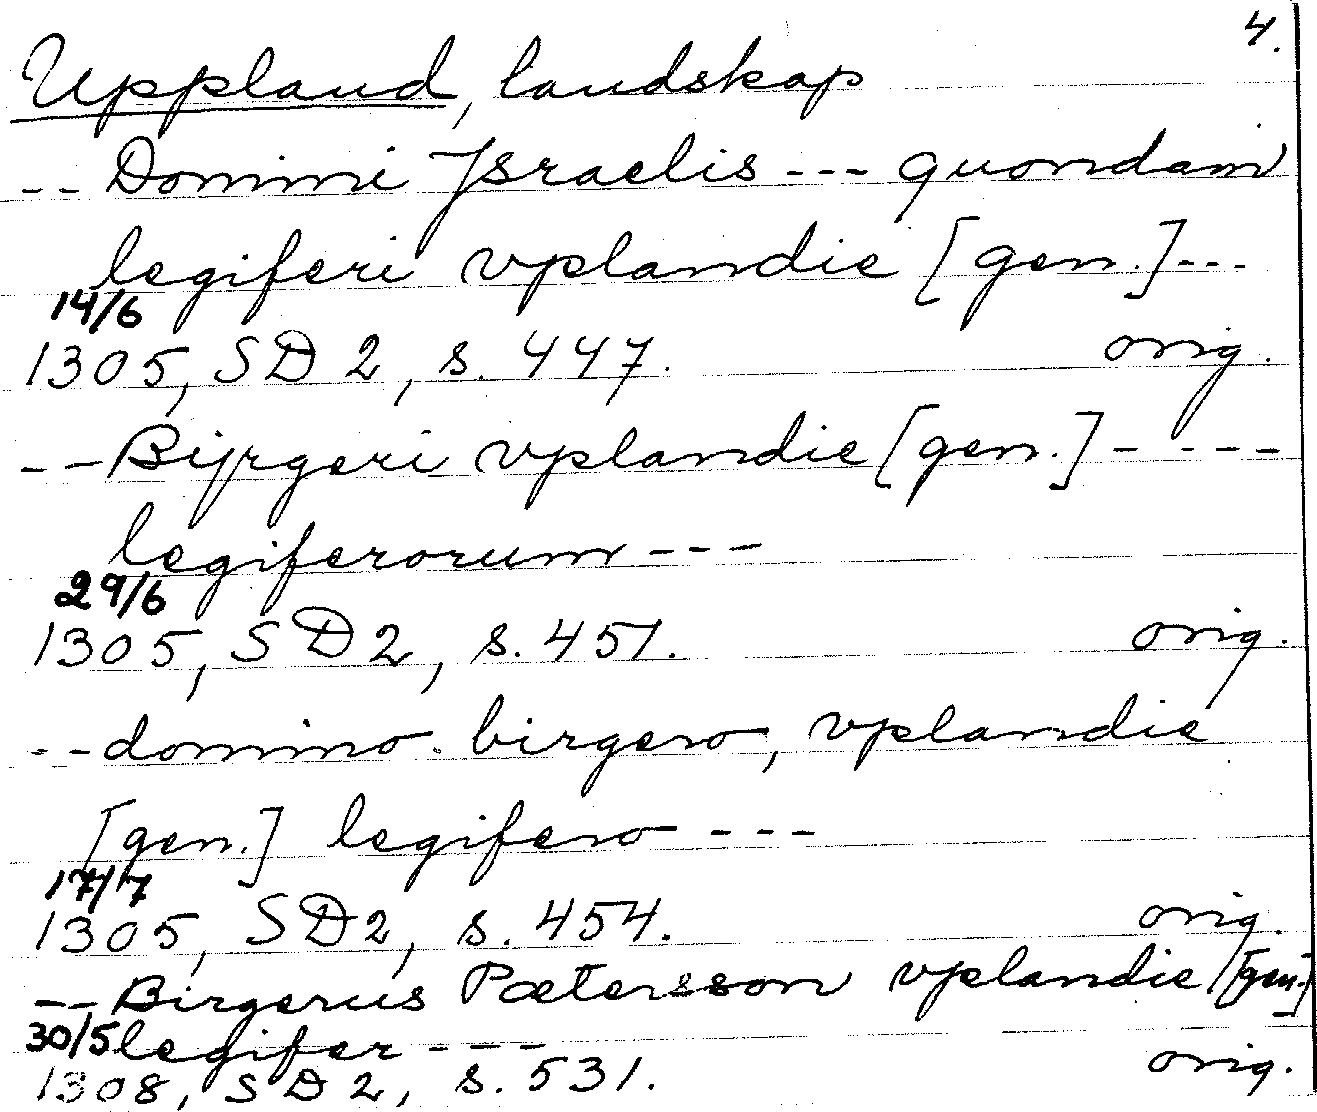 4.
Uppland, landskap
-- Domini Israelis --- quondam
legiferi vplandie [gen.]---
14/6
1305, SD 2, s. 447. orig.
-- Bijrgeri vplandie [gen.] - - - -
legiferorum ---
29/6
1305, SD 2, s. 451. orig.
-- domino birgero, vplandie
[gen.] legifero ---
17/7
1305, SD 2, s. 454. orig.
-- Birgerus Pætersson vplandie [gen.]
30/5 legifer - - -
1308, SD 2, s. 531. orig.